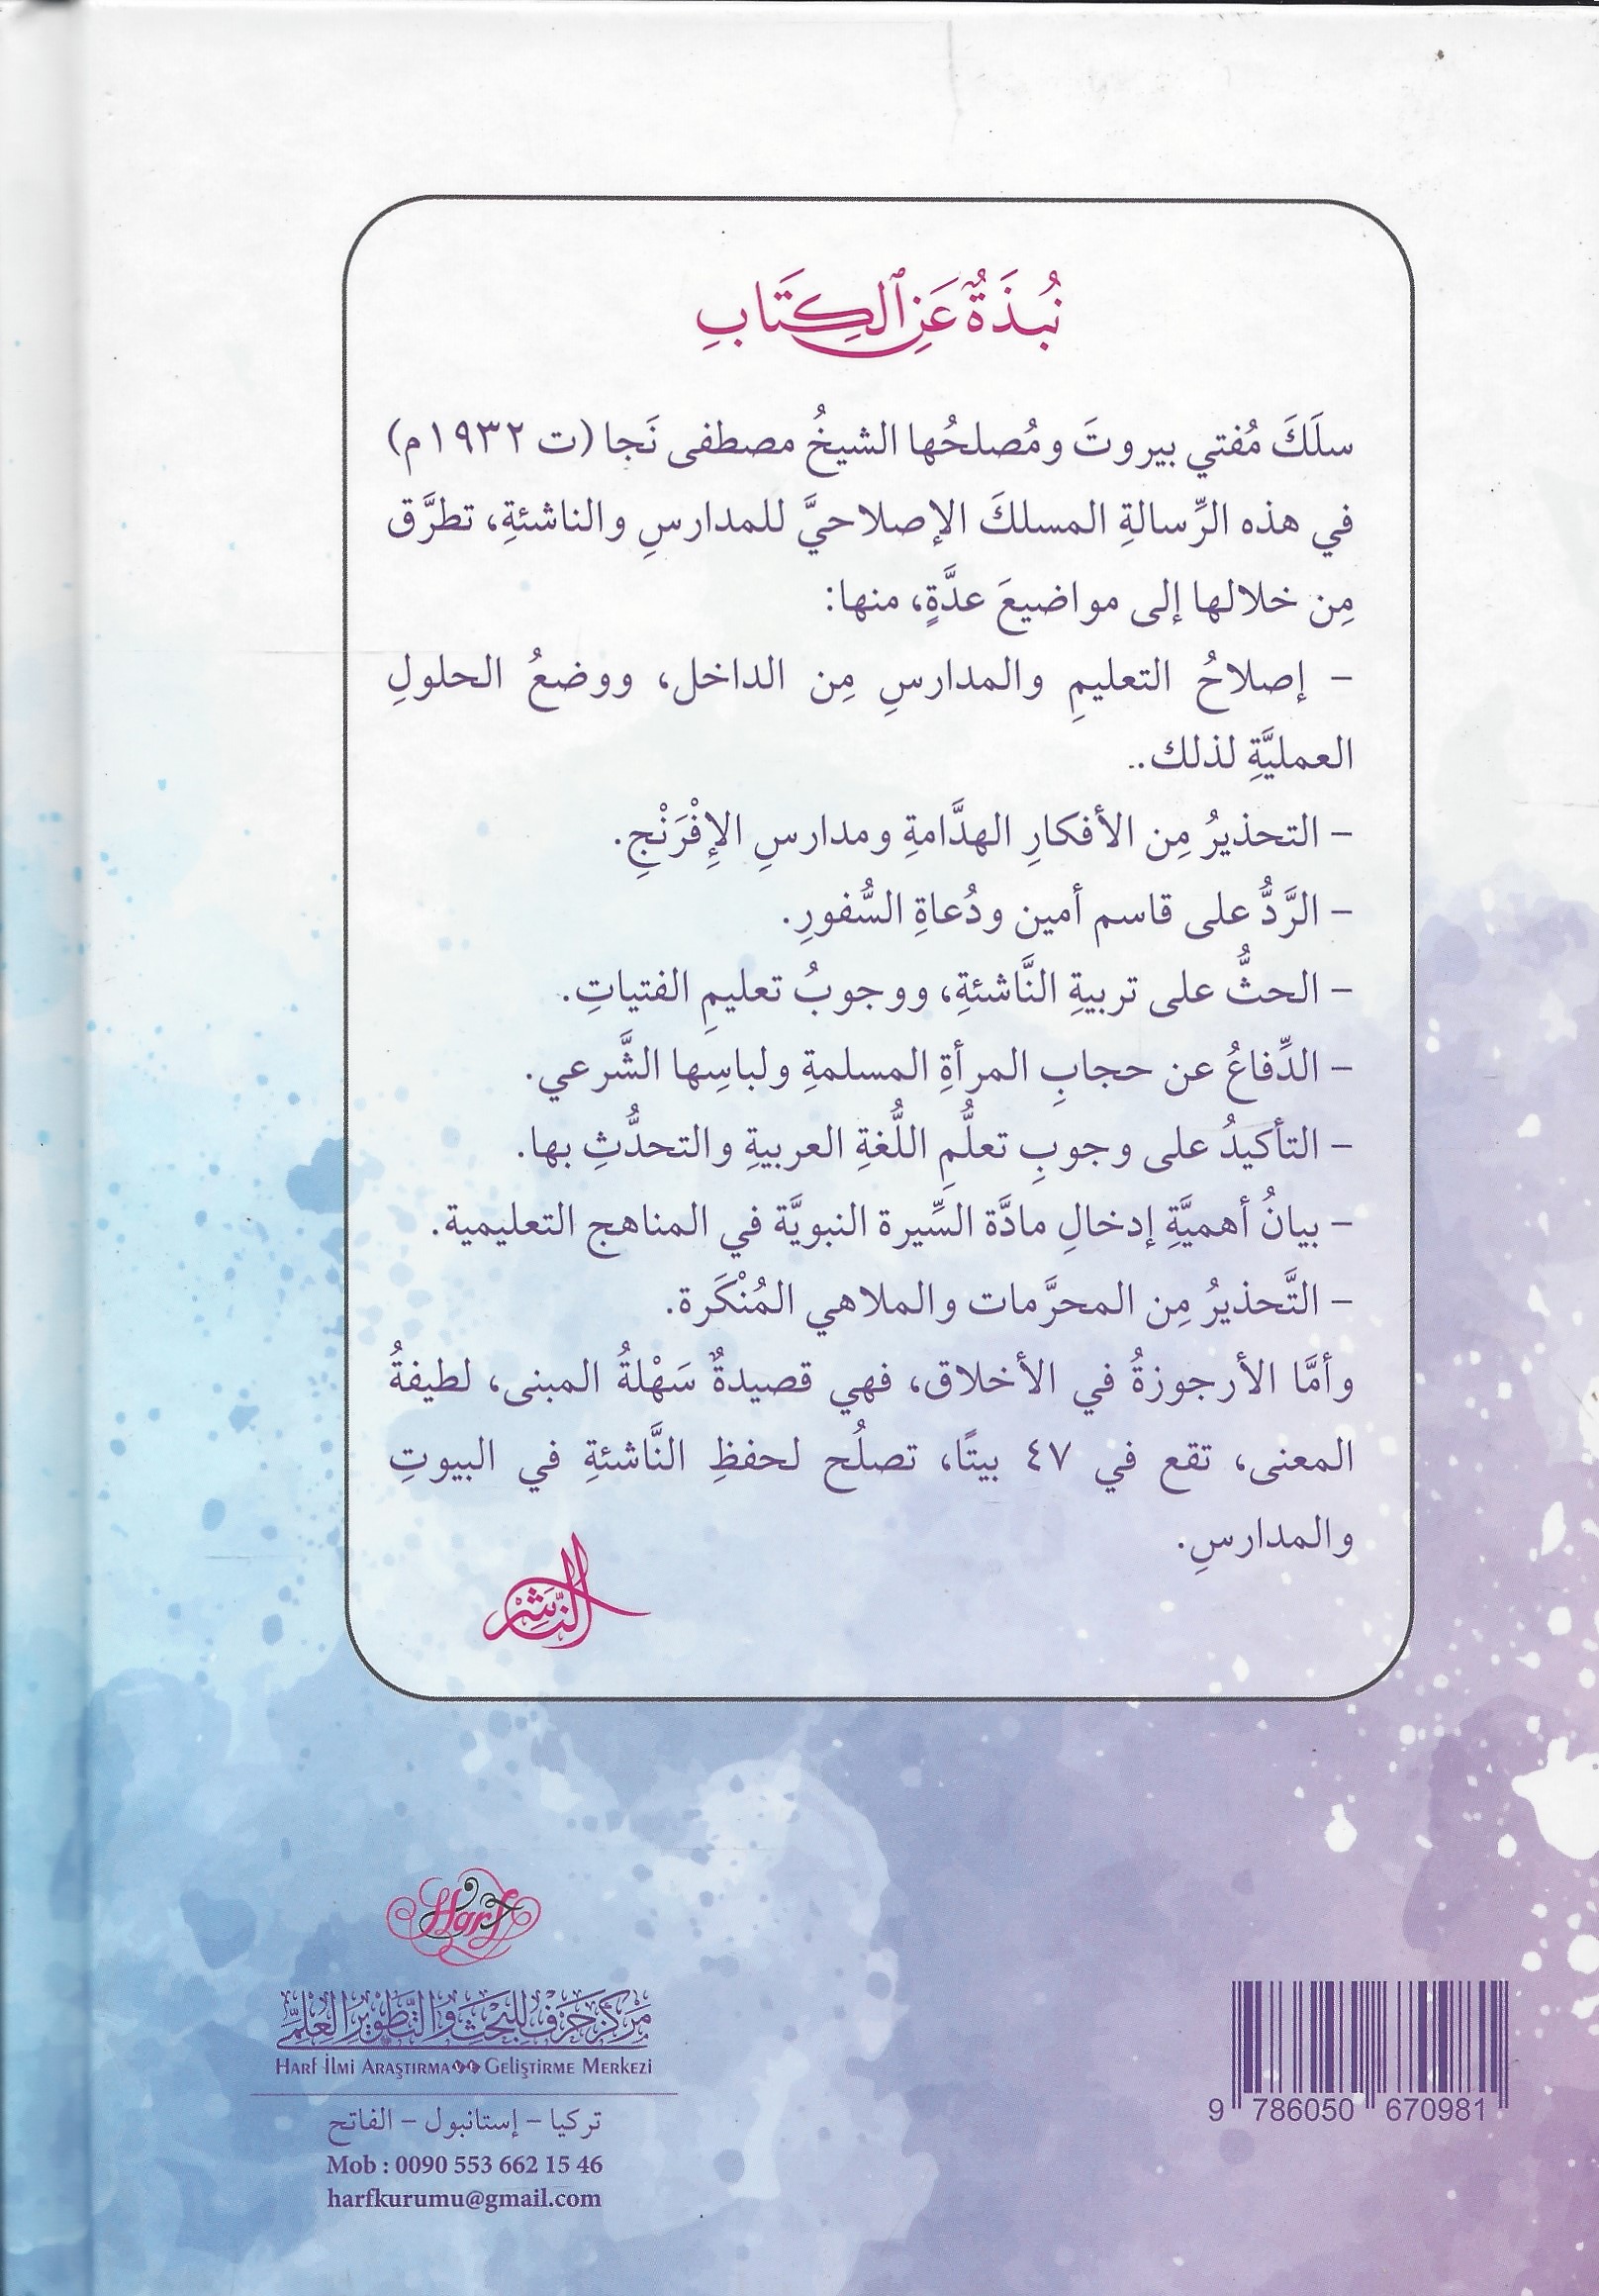 نُبذَةٌ عَنِ ٱلكِتَابِ
سلَكَ مُفتي بيروتَ ومُصلحُها الشيخُ مصطفى نَجا (ت ١٩٣٢م)
في هذه الرِّسالةِ المسلكَ الإصلاحيَّ للمدارسِ والناشئةِ، تطرَّق
مِن خلالها إلى مواضيعَ عدَّةٍ، منها:
– إصلاحُ التعليمِ والمدارسِ مِن الداخل، ووضعُ الحلولِ
العمليَّةِ لذلك..
– التحذيرُ مِن الأفكارِ الهدَّامةِ ومدارسِ الإِفْرَنْجِ.
– الرَّدُّ على قاسم أمين ودُعاةِ السُّفورِ.
– الحثُّ على تربيةِ النَّاشئةِ، ووجوبُ تعليمِ الفتياتِ.
– الدِّفاعُ عن حجابِ المرأةِ المسلمةِ ولباسِها الشَّرعي.
– التأكيدُ على وجوبِ تعلُّمِ اللُّغةِ العربيةِ والتحدُّثِ بها.
– بيانُ أهميَّةِ إدخالِ مادَّة السِّيرة النبويَّة في المناهج التعليمية.
– التَّحذيرُ مِن المحرَّمات والملاهي المُنْكَرة.
وأمَّا الأرجوزةُ في الأخلاق، فهي قصيدةٌ سَهْلةُ المبنى، لطيفةُ
المعنى، تقع في ٤٧ بيتًا، تصلُح لحفظِ النَّاشئةِ في البيوتِ
والمدارسِ.
النَّاشِر
Harf
مَركَز حَرف لِلبَحث وَالتَّطوير العِلمي
Harf İlmi Araştırma Geliştirme Merkezi
تركيا – إستانبول – الفاتح
Mob : 0090 553 662 15 46
harfkurumu@gmail.com
9 786050 670981